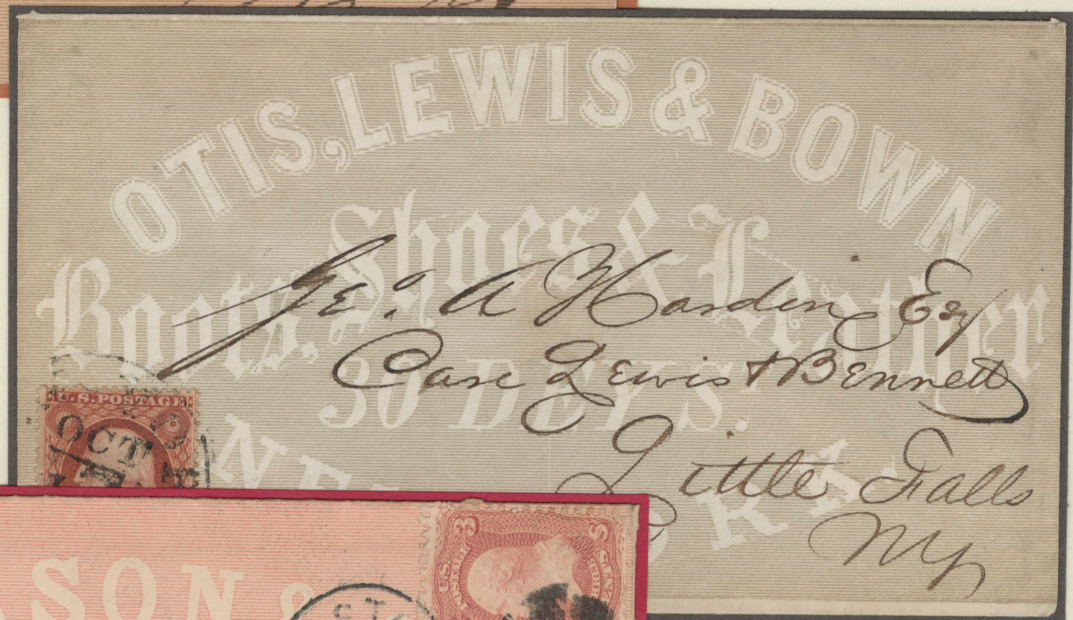 OTIS, LEWIS & BOWN
Boots, Shoes & Leather
30 DEYS.
NE RK
Geo. A Harden Esq
Care Lewis & Bennett
Little Falls
NY
U.S. POSTAGE
OCT
SON &
U.S. POSTAGE